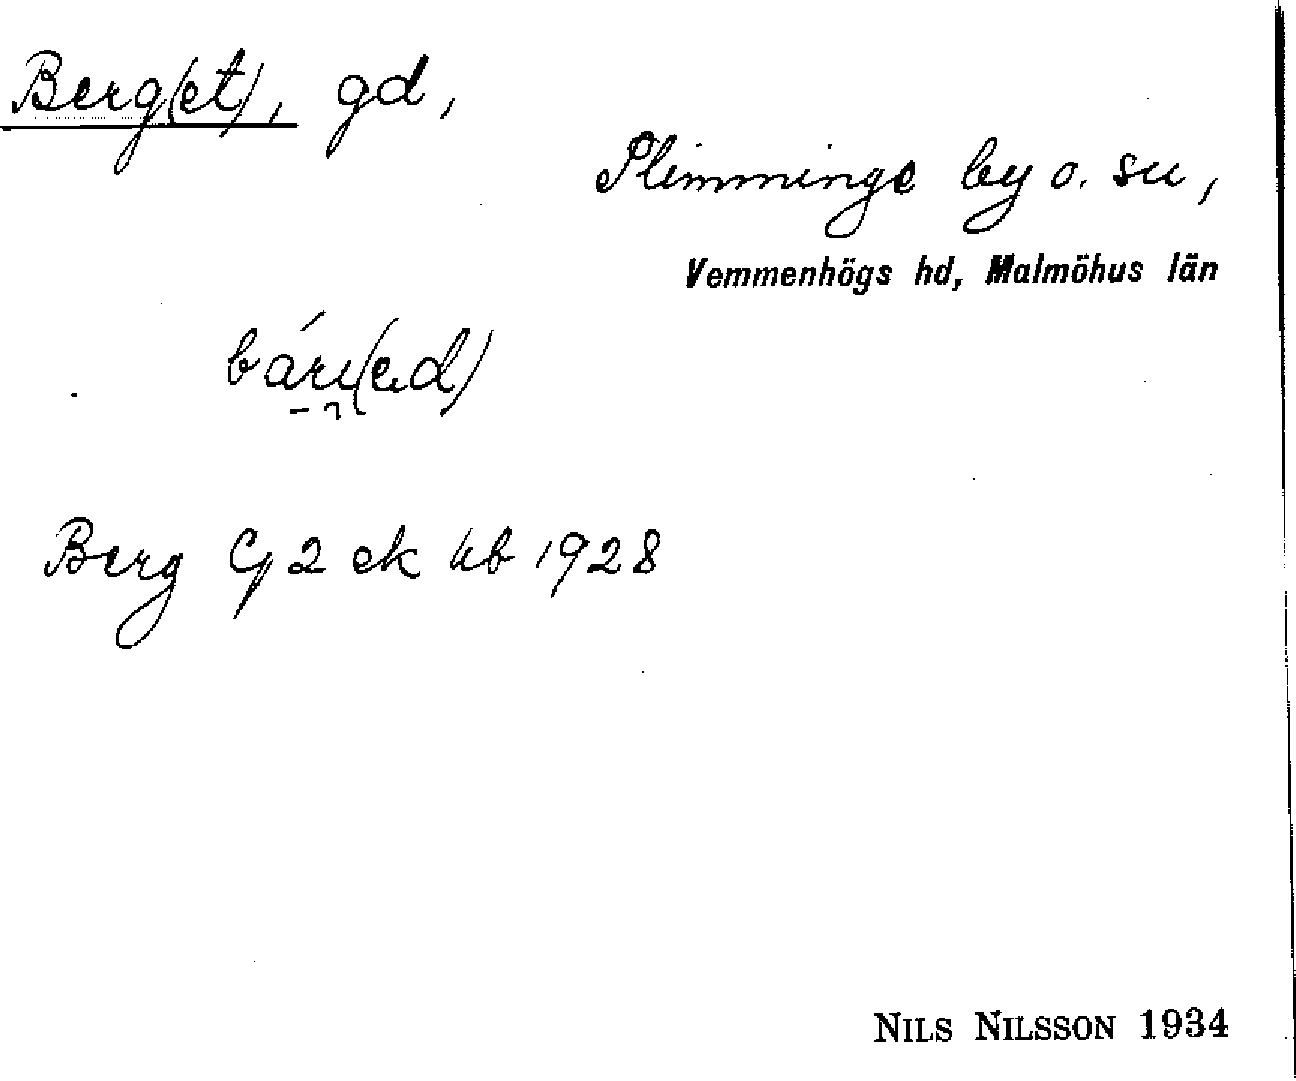 Berg(et), gd,
Slimminge by o. sn,
Vemmenhögs hd, Malmöhus län
Berg G 2 ek kb 1928
NILS NILSSON 1934